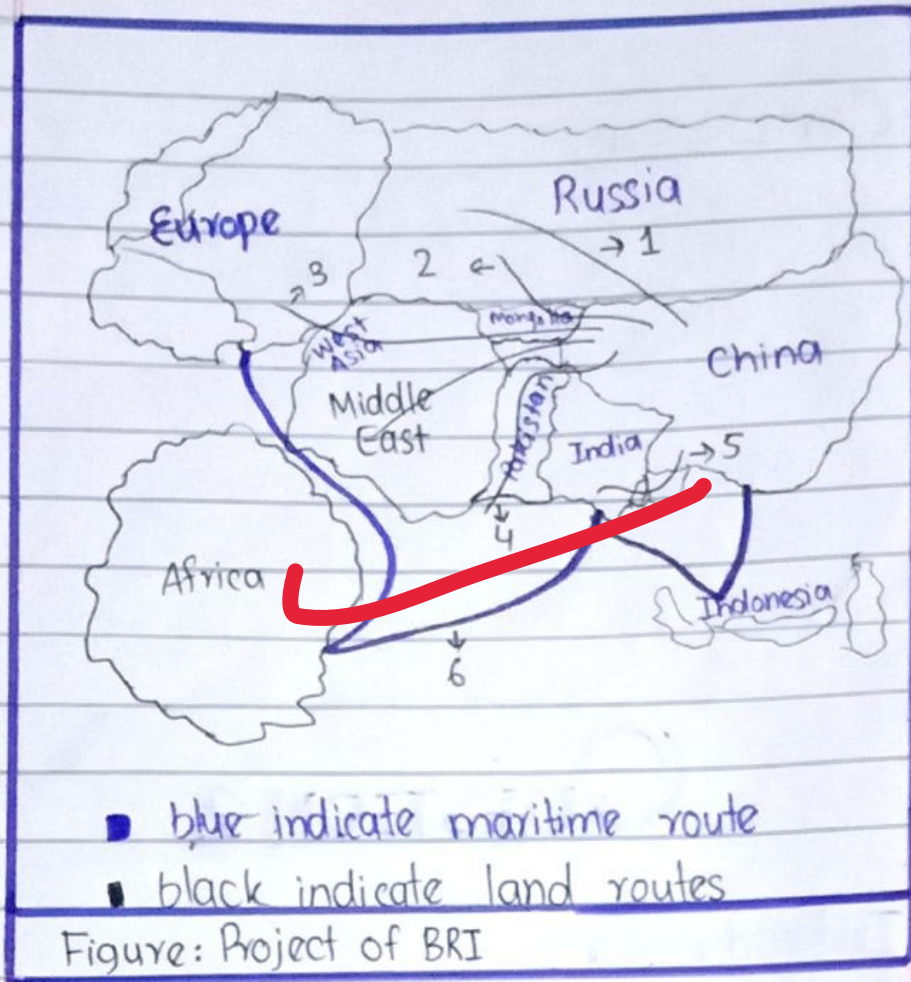 Russia
Europe
→ 1
3
2 ←
Mongolia
West
Asia
China
Middle
East
Pakistan
India
→ 5
4
Africa
Indonesia
6
blue indicate maritime route
black indicate land routes
Figure: Project of BRI